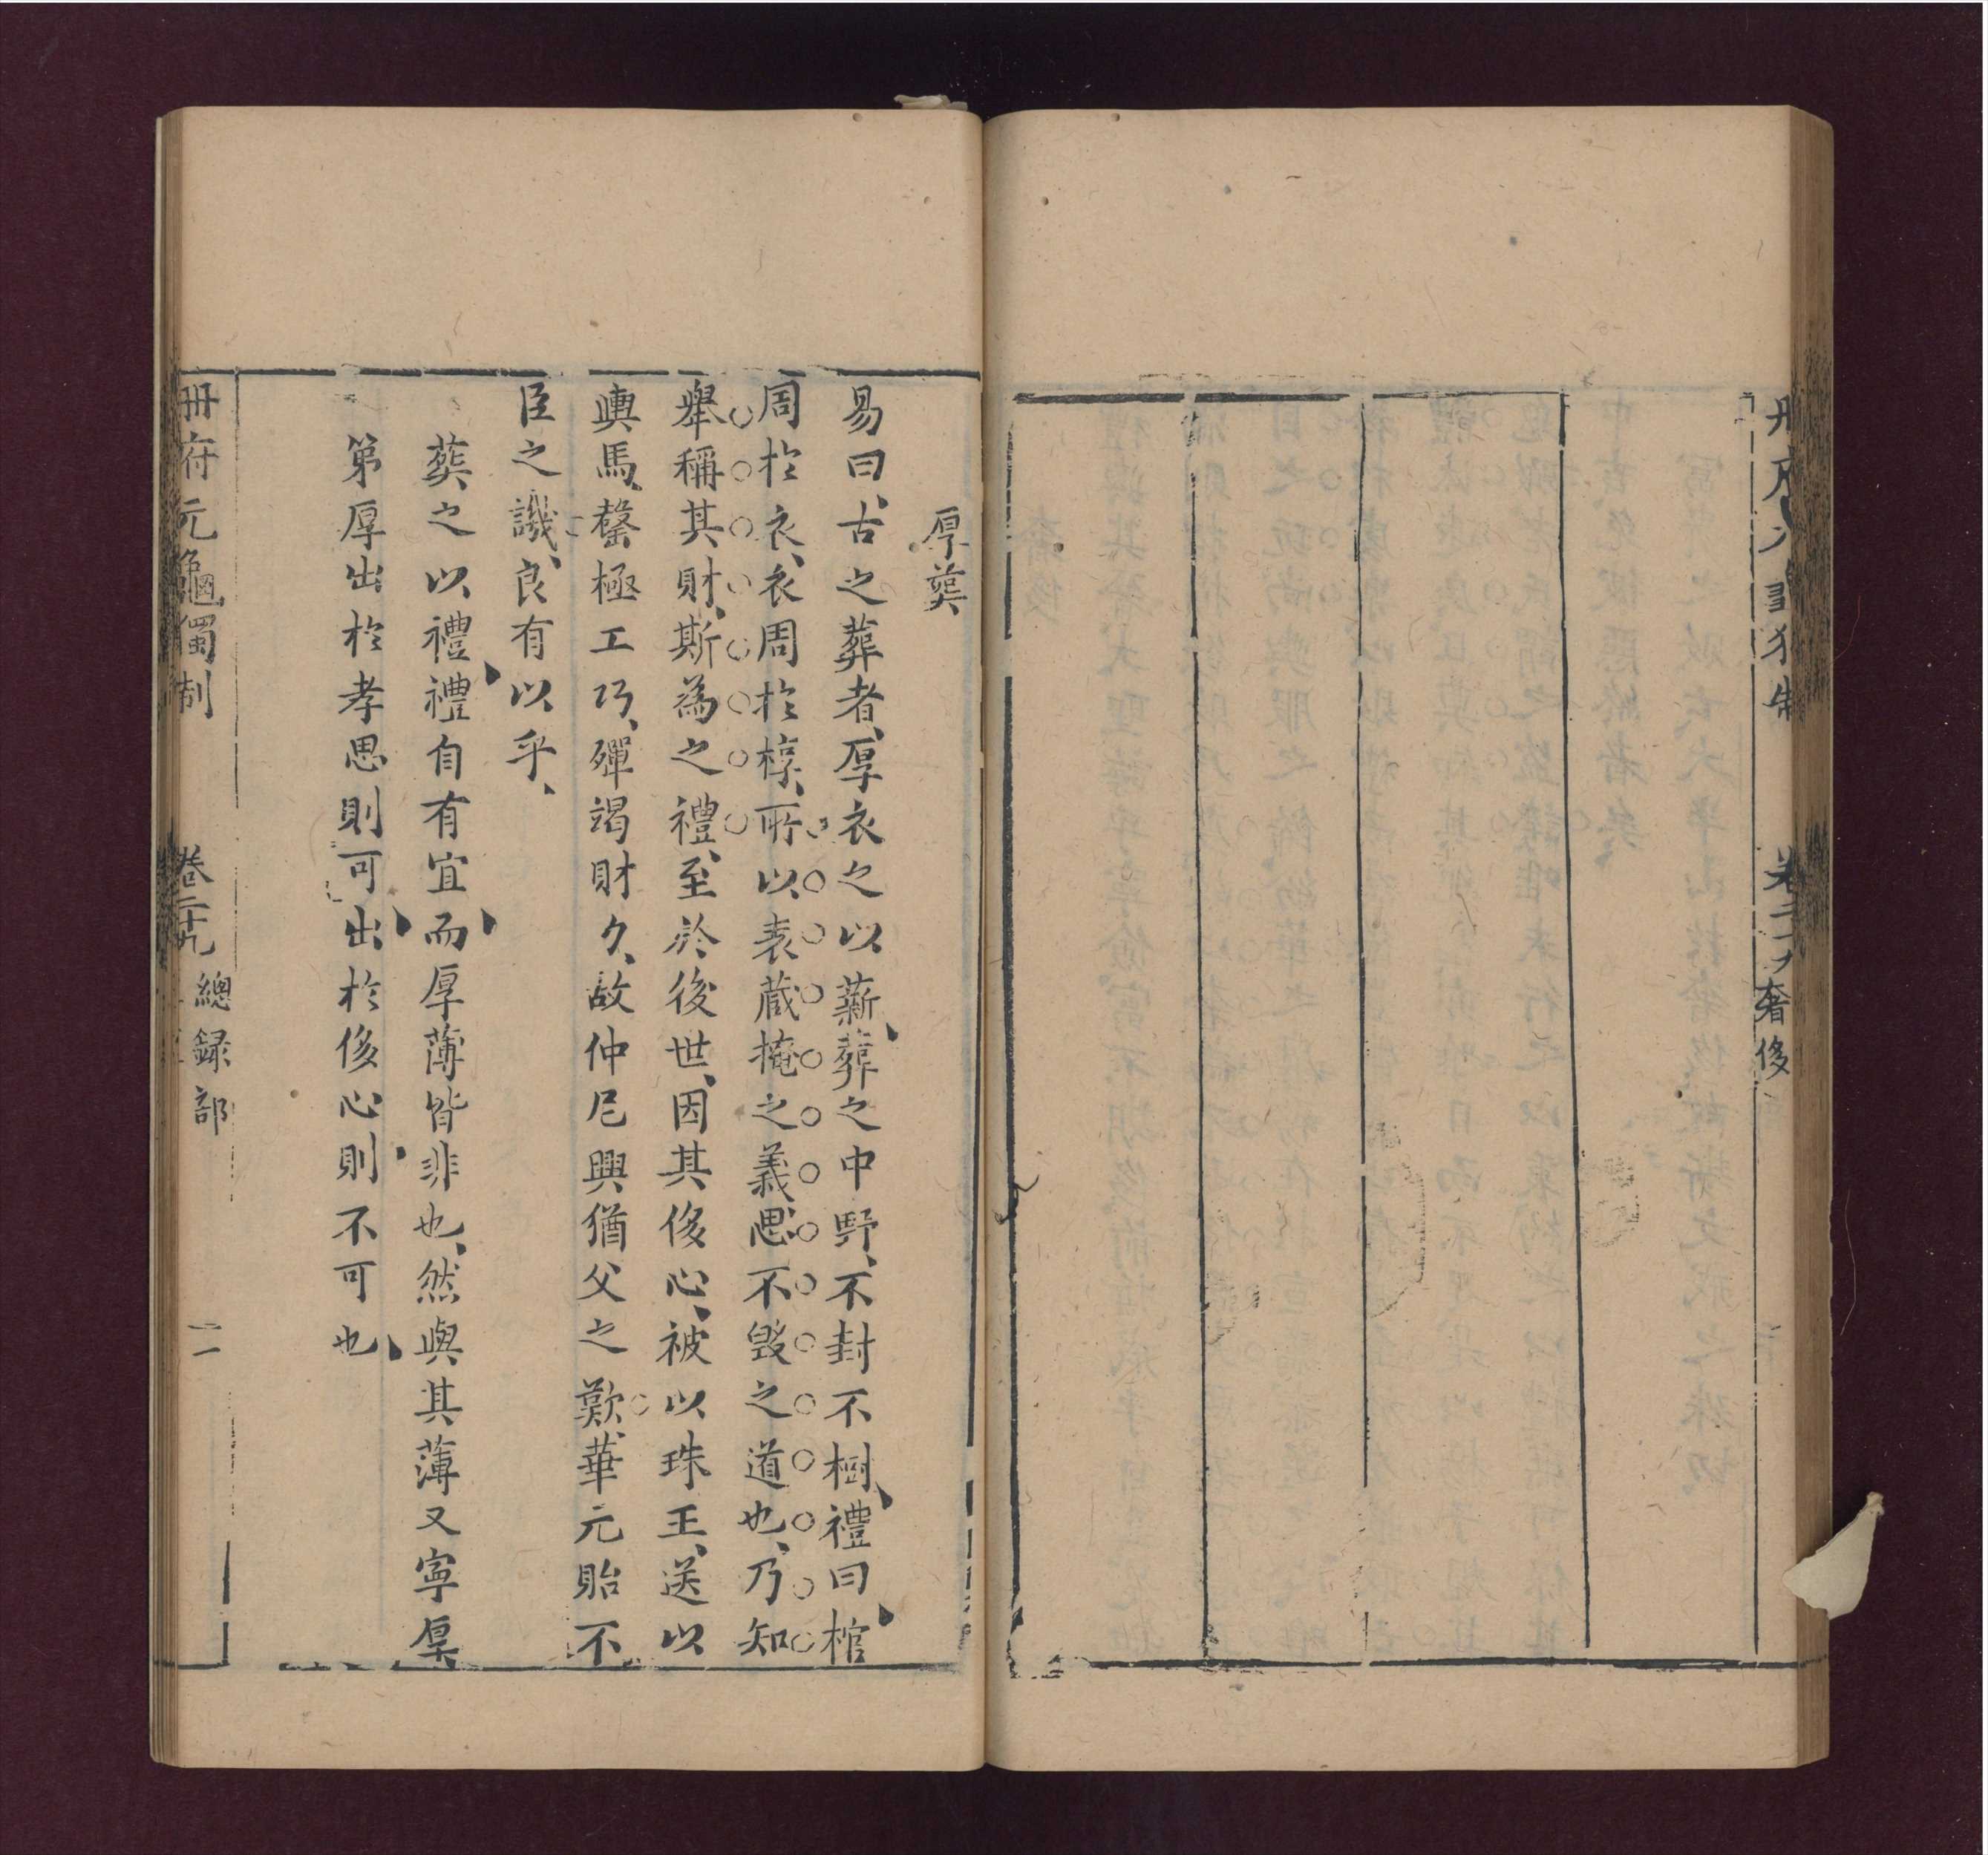 卷二十九 奢侈
厚葬
易曰、古之葬者、厚衣之以薪、葬之中野、不封不樹、禮曰、棺
周於衣、衣周於椁、所以表蔵掩之義、思不毀之道也、乃知
舉稱其財、斯為之禮、至於後世、因其侈心、被以珠玉、送以
輿馬、罄極工巧、殫竭財力、故仲尼興猶父之歎、華元貽不
臣之譏、良有以乎、
葬之以禮、禮自有宜、而厚薄皆非也、然與其薄又寜厚、
第厚出於孝思則可、出於侈心則不可也、
冊府元龜獨制 卷二十九 總録部 二